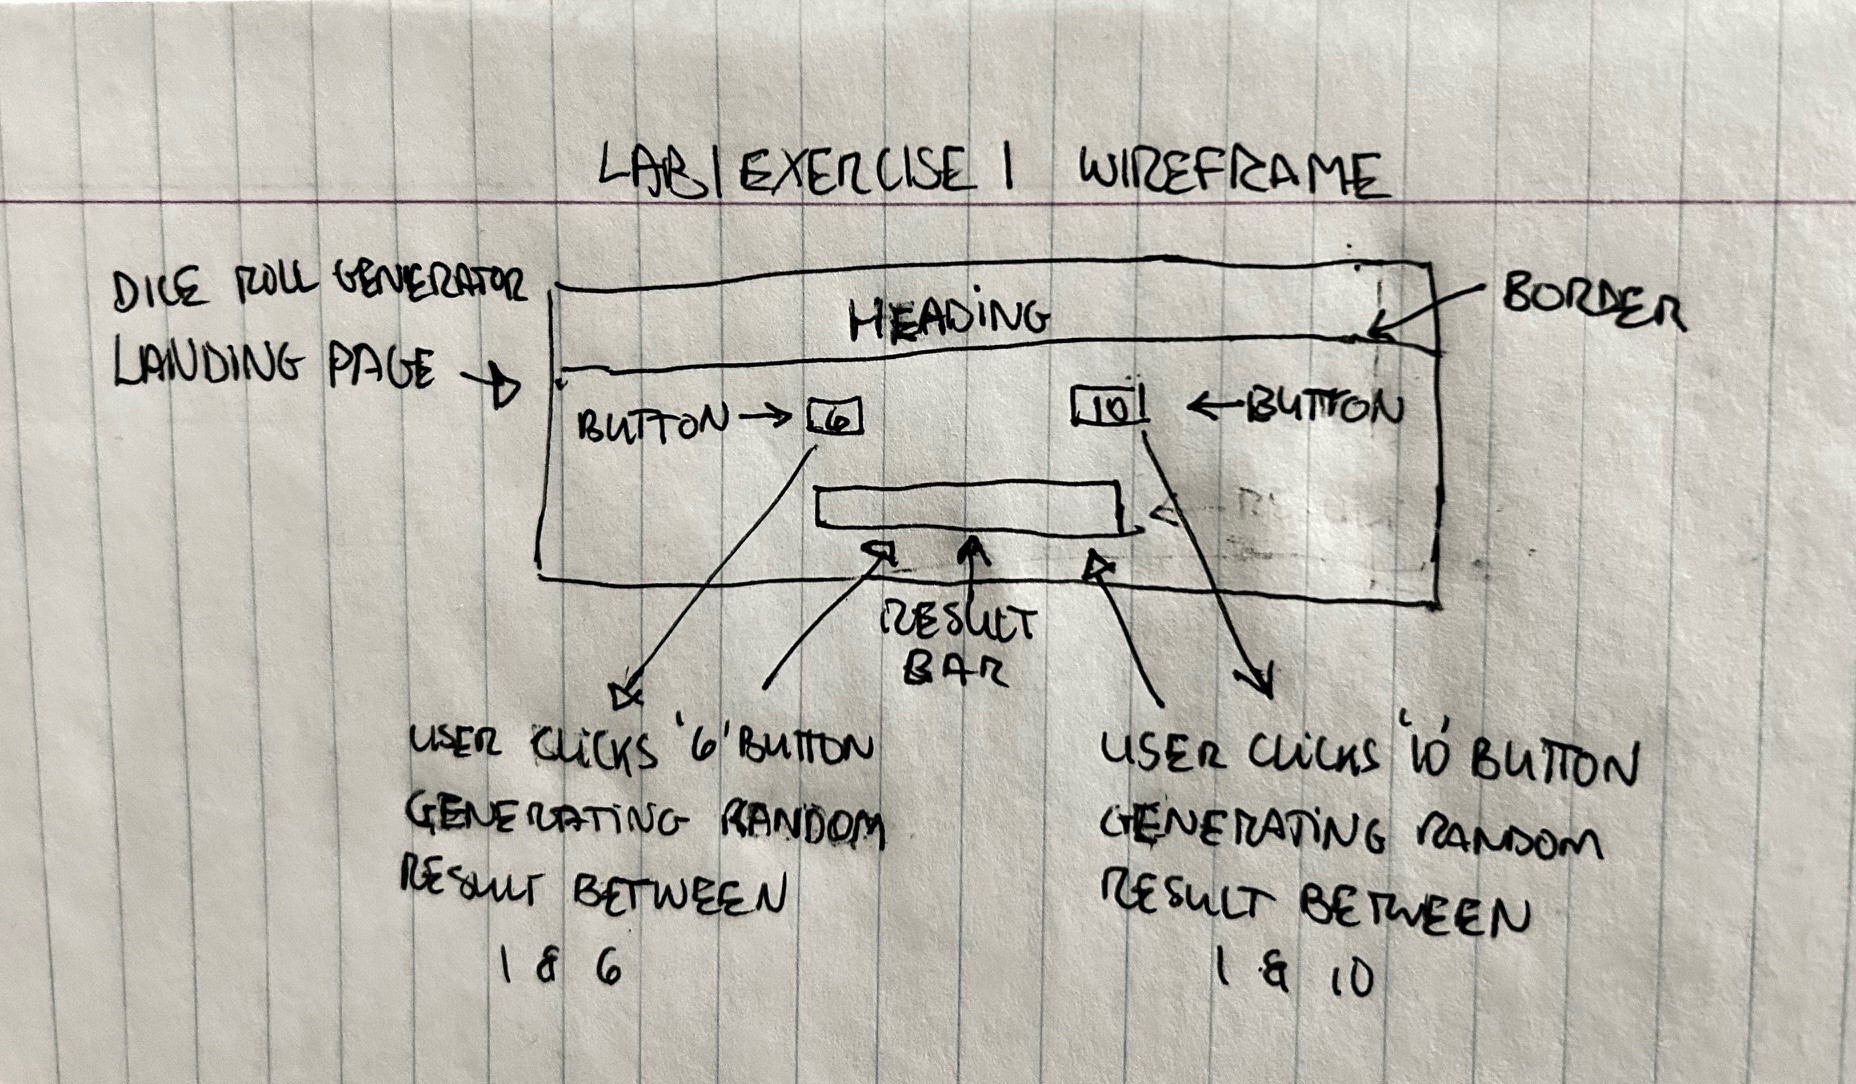 LAB 1 EXERCISE 1 WIREFRAME
DICE ROLL GENERATOR
LANDING PAGE
HEADING
BORDER
BUTTON
6
10
BUTTON
RESULT
BAR
USER CLICKS '6' BUTTON
GENERATING RANDOM
RESULT BETWEEN
1 & 6
USER CLICKS '10' BUTTON
GENERATING RANDOM
RESULT BETWEEN
1 & 10